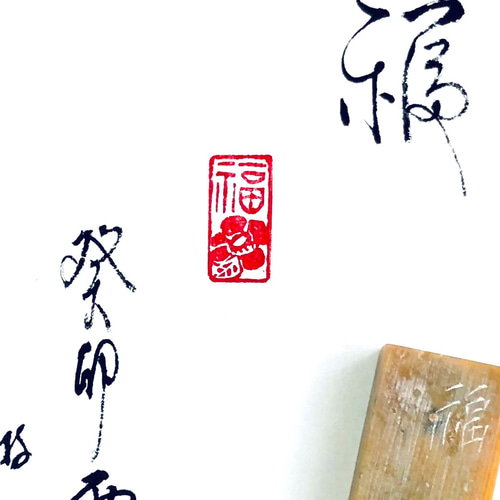 福
福
癸卯
福